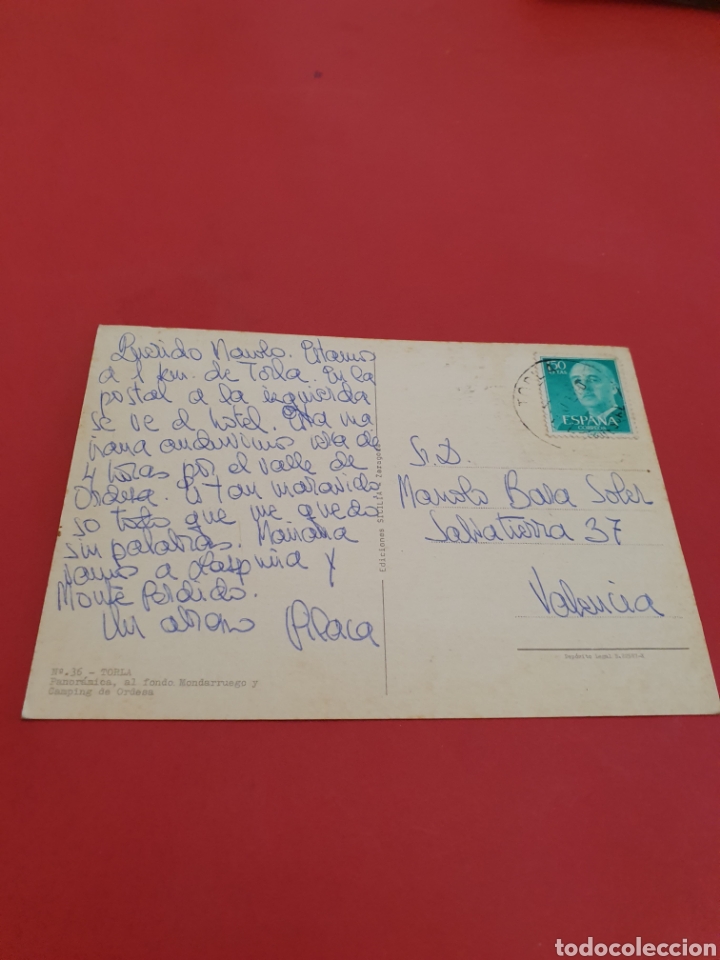 Querido Manolo. Estamos
a 1 km. de Torla. En la
postal a la izquierda
se ve el hotel. Esta ma
ñana anduvimos cerca de
4 horas por el valle de
Ordesa. Es tan maravillo
so todo que me quedo
sin palabras. Mañana
vamos a y
Monte Perdido.
Un abrazo
Nº.36 - TORLA
Panorámica, al fondo Mondarruego y
Camping de Ordesa
Ediciones SICILIA Zaragoza
50
ESPAÑA
CORREOS
Sr. D.
Manolo Soler
Salvatierra 37
Valencia
Depósito Legal
todocoleccion